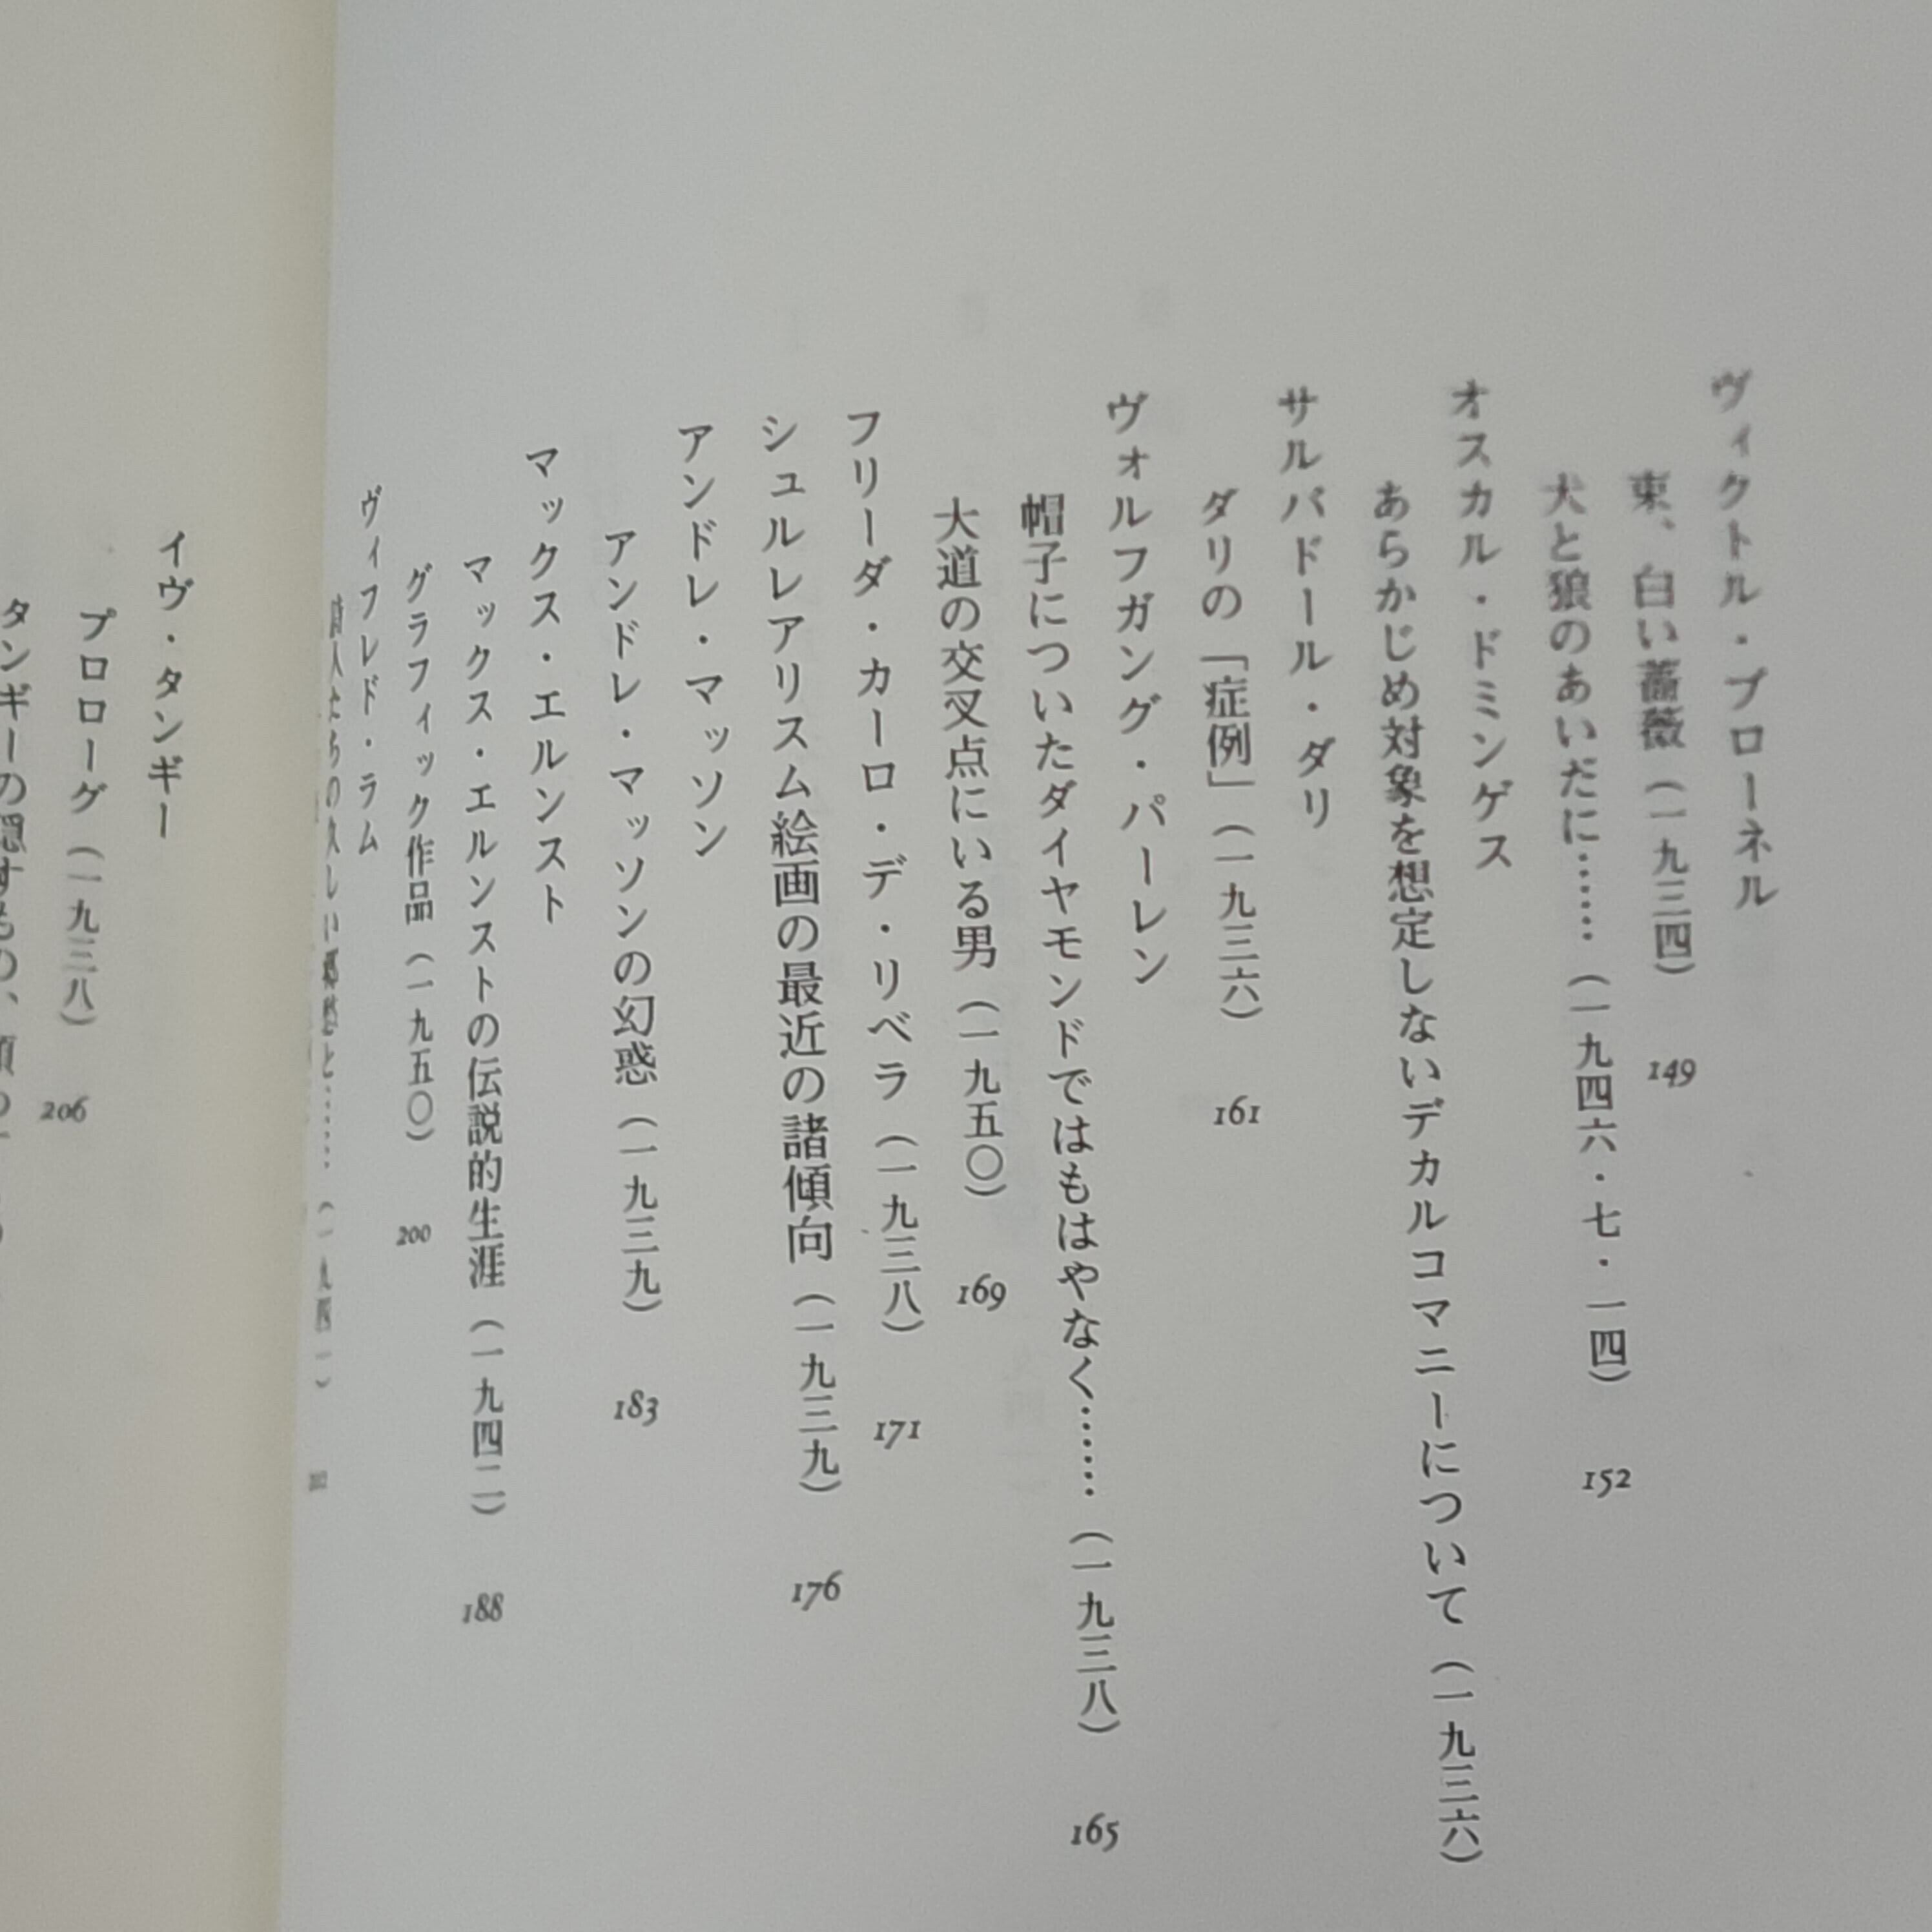 ヴィクトル・ブローネル
東、白い薔薇（一九三四） 149
犬と狼のあいだに……（一九四六・七・一四） 152
オスカル・ドミンゲス
あらかじめ対象を想定しないデカルコマニーについて（一九三六）
サルバドール・ダリ
ダリの「症例」（一九三六） 161
ヴォルフガング・パーレン
帽子についいたダイヤモンドではもはやなく……（一九三八） 165
大道の交叉点にいる男（一九五〇） 169
フリーダ・カーロ・デ・リベラ（一九三八） 171
シュルレアリスム絵画の最近の諸傾向（一九三九） 176
アンドレ・マッソン
アンドレ・マッソンの幻惑（一九三九） 183
マックス・エルンスト
マックス・エルンストの伝説的生涯（一九四二） 188
グラフィック作品（一九五〇） 200
ヴィフレド・ラム
詩人たちの久しい郷愁と……（一九四一）
イヴ・タンギー
プロローグ（一九三八） 206
タンギーの隠すもの、